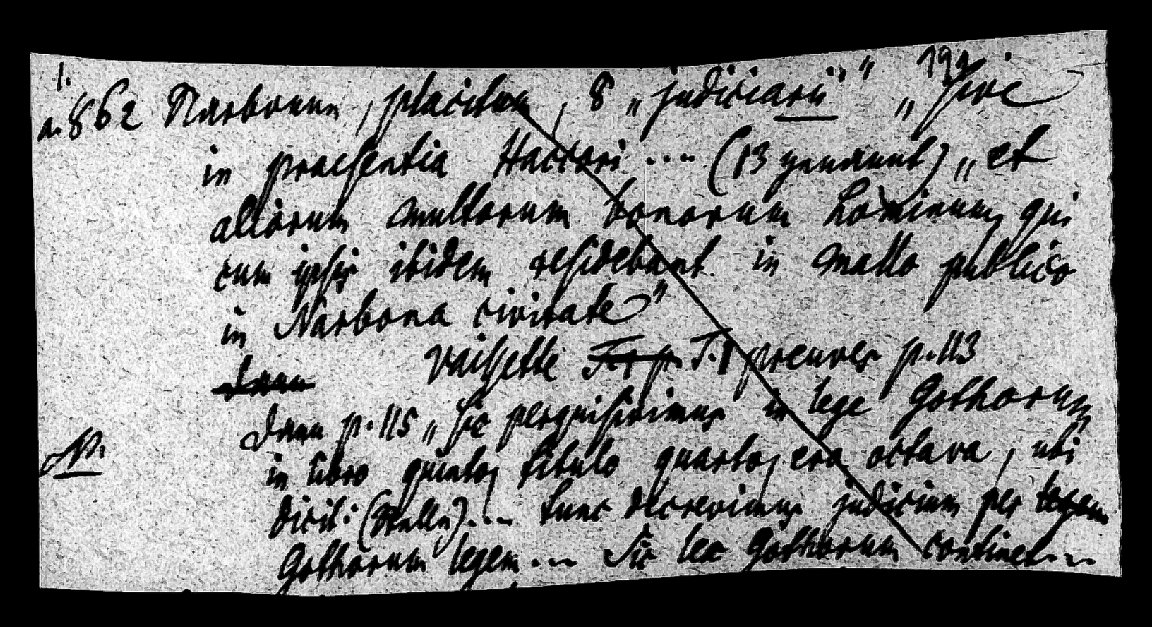 1. 
a. 862 Narbonne, placitum, 8 „judiciarii" „sive
in praesentia ... (13 genannt) „et
aliorum multorum bonorum hominum, qui
cum ipsis ibidem residebant in mallo publico
in Narbona civitate"
Vaissette T. I preuves p. 113
dann p. 115 „Sic perquisivimus in lege Gothorum
N.
in libro quinto, titulo quarto, era octava, ubi
dicit: (Stelle).... tunc decrevimus judicium per legem
Gothorum legem ... Sic lex Gothorum continet...